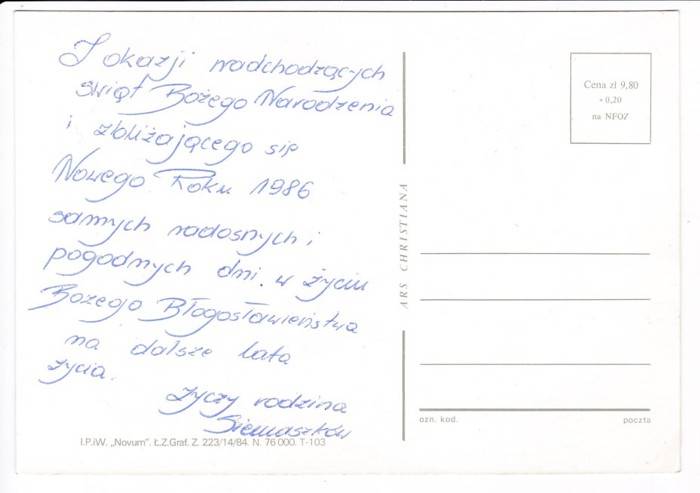 Z okazji nadchodzących
świąt Bożego Narodzenia
i zbliżającego się
Nowego Roku 1986
samych radosnych i
pogodnych dni w życiu
Bożego Błogosławieństwa
na dalsze lata
życia.
życzy rodzina
Siemaszków
I.P.iW. „Novum". Ł.Z.Graf. Z. 223/14/84. N. 76 000. T-103
ARS CHRISTIANA
Cena zł 9,80
+ 0,20
na NFOZ
ozn. kod. poczta